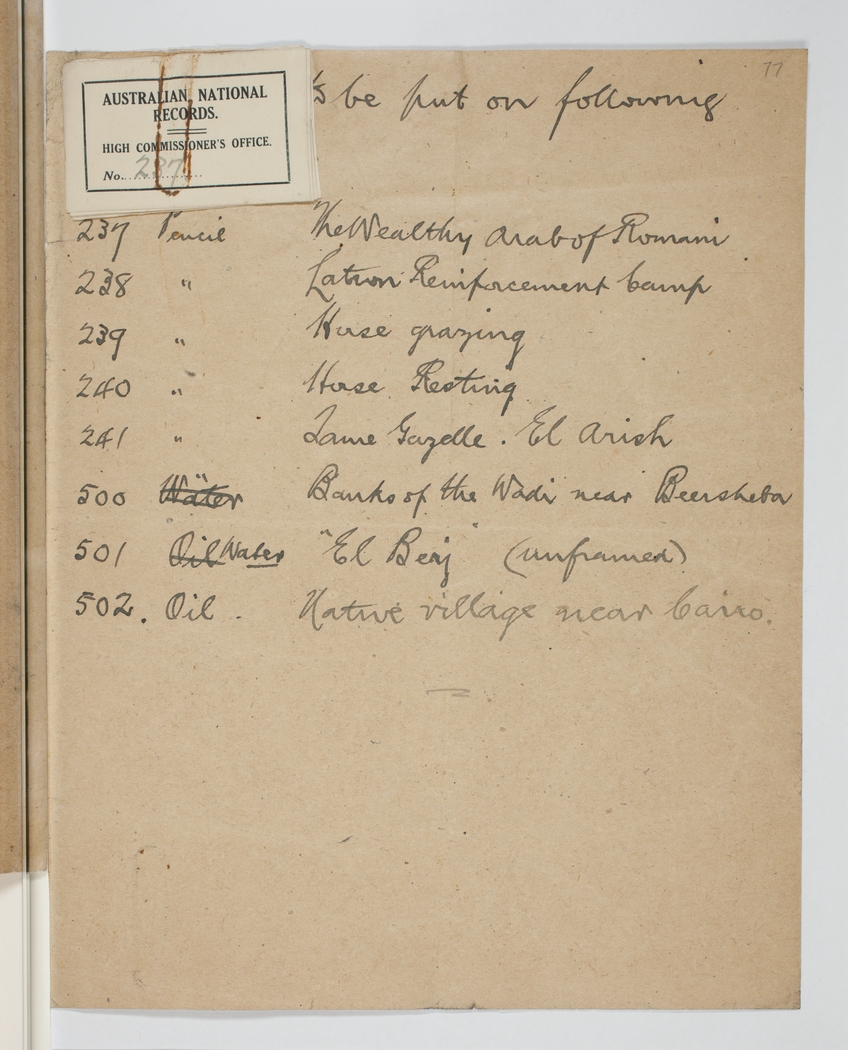 77
AUSTRALIAN NATIONAL
RECORDS.
HIGH COMMISSIONER'S OFFICE.
No. 237
to be put on following
237 Pencil The Wealthy Arab of Romani
238 " Latron Reinforcement Camp
239 " Horse grazing
240 " Horse Resting
241 " Lame Gazelle. El Arish
500 Water Banks of the Wadi near Beersheba
501 Oil Water "El Berj" (unframed)
502. Oil. Native village near Cairo.